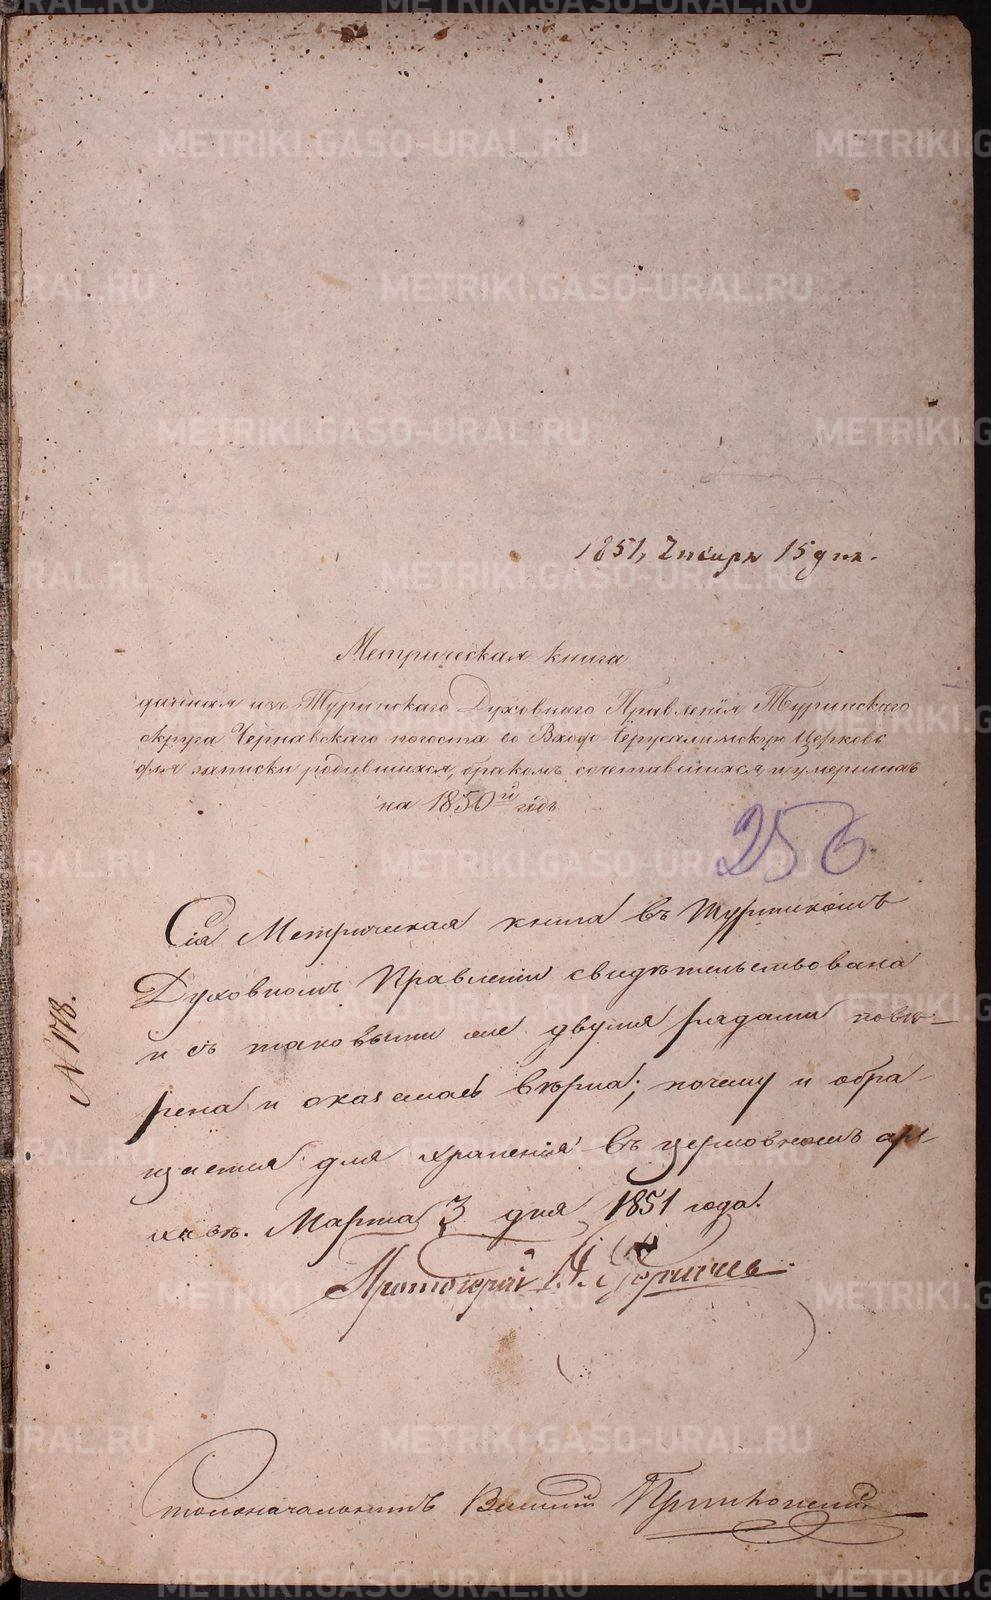 1851, Генваря 15 дня.
Метрическая книга
данная изъ Туринскаго Духовнаго Правленія Туринскаго
округа Чернавскаго погоста во Входо Іерусалимскую Церковь
для записки родившихся, бракомъ сочетавшихся и умершихъ
на 1850й годъ
256.
Сія Метрическая книга въ Туринскомъ
Духовномъ Правленіи свидѣтельствована
и съ таковыми же двумя рядами повѣ-
рена и оказалась вѣрна; почему и обра-
щается для храненія въ церковномъ ар-
хивѣ. Марта 3 дня 1851 года.
Протоіерей
N 178.
Столоначальникъ
METRIKI.GASO-URAL.RU